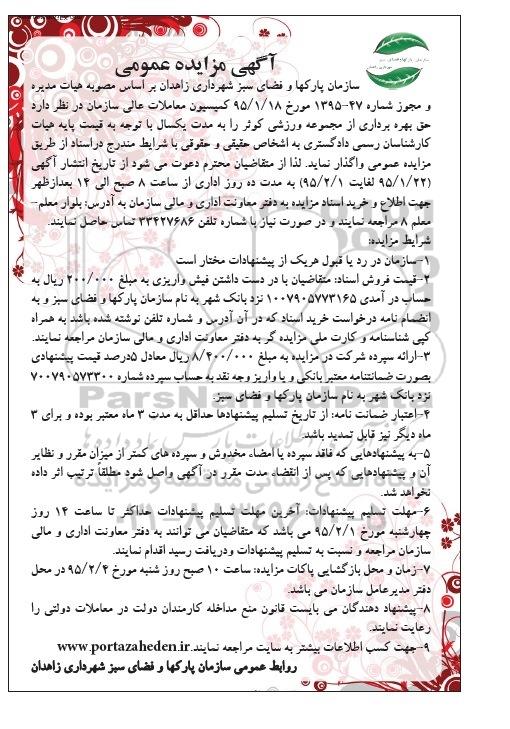 سازمان پارکها و فضای سبز
شهرداری زاهدان
آگهی مزایده عمومی
سازمان پارکها و فضای سبز شهرداری زاهدان بر اساس مصوبه هیات مدیره
و مجوز شماره ۴۷-۱۳۹۵ مورخ ۹۵/۱/۱۸ کمیسیون معاملات عالی سازمان در نظر دارد
حق بهره برداری از مجموعه ورزشی کوثر را به مدت یکسال با توجه به قیمت پایه هیات
کارشناسان رسمی دادگستری به اشخاص حقیقی و حقوقی با شرایط مندرج دراسناد از طریق
مزایده عمومی واگذار نماید. لذا از متقاضیان محترم دعوت می شود از تاریخ انتشار آگهی
(۹۵/۱/۲۲ لغایت ۹۵/۲/۱) به مدت ده روز اداری از ساعت ۸ صبح الی ۱۴ بعدازظهر
جهت اطلاع و خرید اسناد مزایده به دفتر معاونت اداری و مالی سازمان به آدرس: بلوار معلم-
معلم ۸ مراجعه نمایند و در صورت نیاز با شماره تلفن ۳۳۴۲۷۶۸۶ تماس حاصل نمایند.
شرایط مزایده:
۱-سازمان در رد یا قبول هریک از پیشنهادات مختار است
۲-قیمت فروش اسناد: متقاضیان با در دست داشتن فیش واریزی به مبلغ ۲۰۰/۰۰۰ ریال به
حساب در آمدی ۱۰۰۷۹۰۵۷۷۳۱۶۵ نزد بانک شهر به نام سازمان پارکها و فضای سبز و به
انضمام نامه درخواست خرید اسناد که در آن آدرس و شماره تلفن نوشته شده باشد به همراه
کپی شناسنامه و کارت ملی مزایده گر به دفتر معاونت اداری و مالی سازمان مراجعه نمایند.
۳-ارائه سپرده شرکت در مزایده به مبلغ ۸/۴۰۰/۰۰۰ ریال معادل ۵درصد قیمت پیشنهادی
بصورت ضمانتنامه معتبر بانکی و یا واریز وجه نقد به حساب سپرده شماره ۷۰۰۷۹۰۵۷۳۳۰۰
نزد بانک شهر به نام سازمان پارکها و فضای سبز.
۴-اعتبار ضمانت نامه: از تاریخ تسلیم پیشنهادها حداقل به مدت ۳ ماه معتبر بوده و برای ۳
ماه دیگر نیز قابل تمدید باشد.
۵-به پیشنهادهایی که فاقد سپرده یا امضاء مخدوش و سپرده های کمتر از میزان مقرر و نظایر
آن و پیشنهادهایی که پس از انقضاء مدت مقرر در آگهی واصل شود مطلقاً ترتیب اثر داده
نخواهد شد.
۶-مهلت تسلیم پیشنهادات: آخرین مهلت تسلیم پیشنهادات حداکثر تا ساعت ۱۴ روز
چهارشنبه مورخ ۹۵/۲/۱ می باشد که متقاضیان می توانند به دفتر معاونت اداری و مالی
سازمان مراجعه و نسبت به تسلیم پیشنهادات ودریافت رسید اقدام نمایند.
۷-زمان و محل بازگشایی پاکات مزایده: ساعت ۱۰ صبح روز شنبه مورخ ۹۵/۲/۴ در محل
دفتر مدیرعامل سازمان می باشد.
۸-پیشنهاد دهندگان می بایست قانون منع مداخله کارمندان دولت در معاملات دولتی را
رعایت نمایند.
۹-جهت کسب اطلاعات بیشتر به سایت مراجعه نمایند.www.portazaheden.ir
روابط عمومی سازمان پارکها و فضای سبز شهرداری زاهدان
ParsNamadData